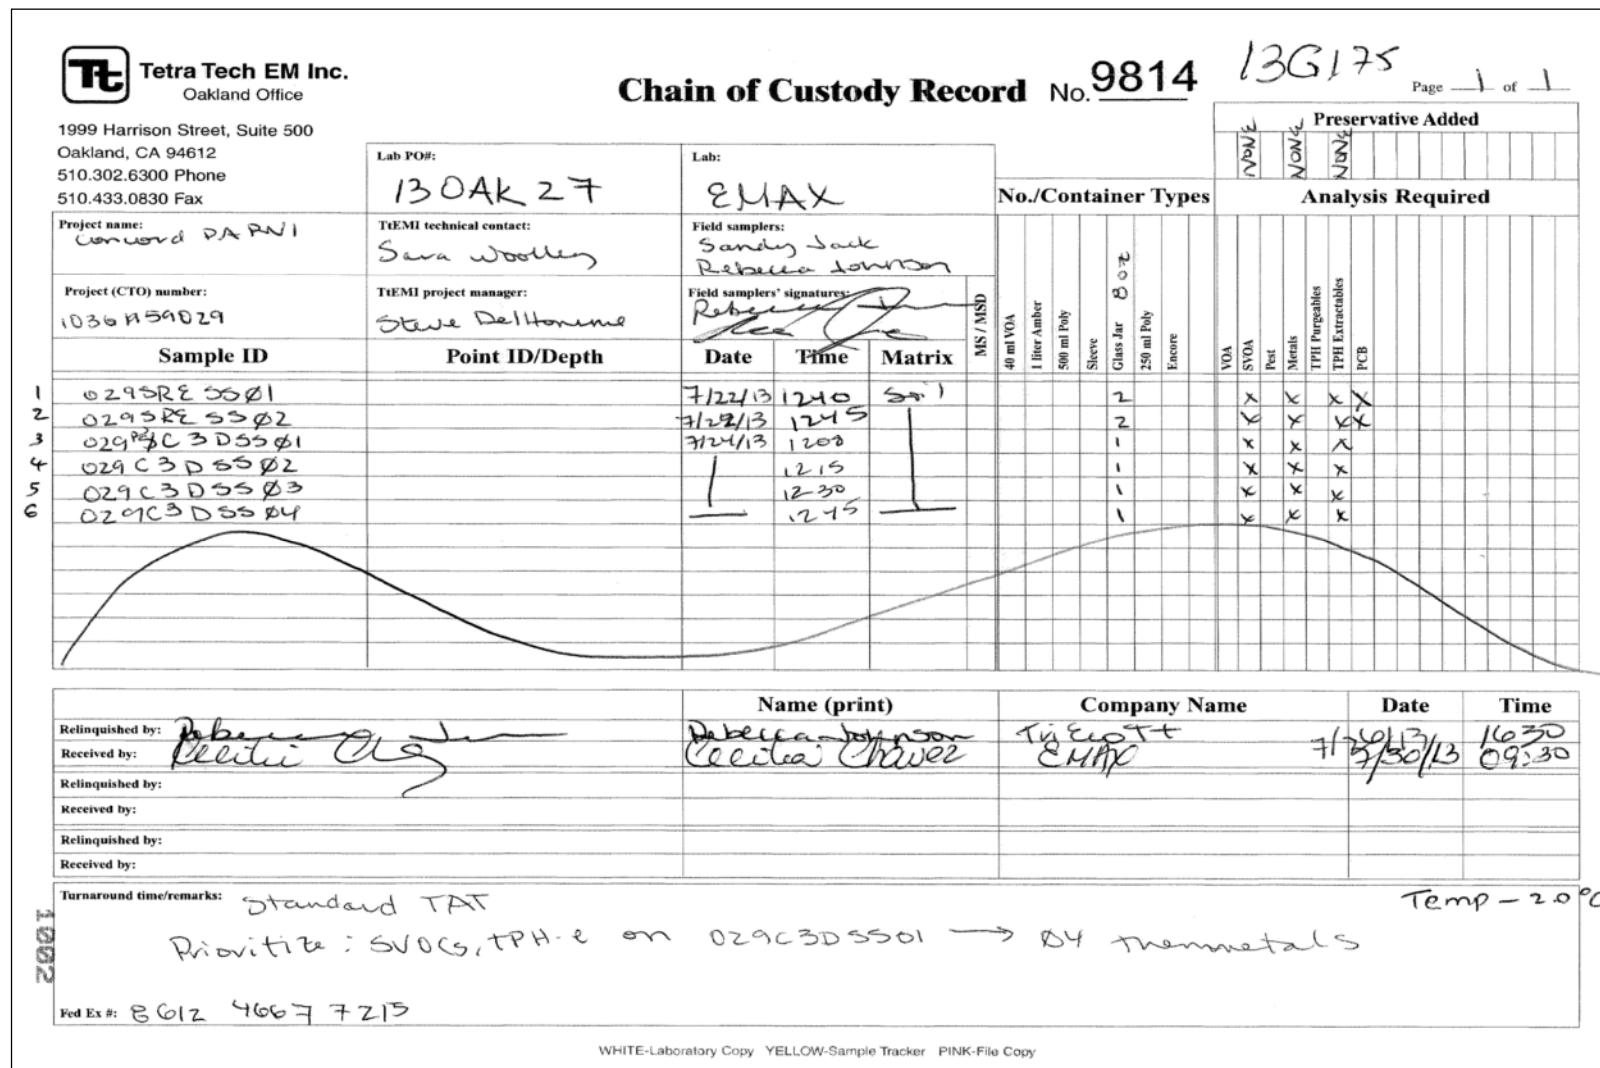 Tt Tetra Tech EM Inc.
Oakland Office
Chain of Custody Record No. 9814
13G175
Page 1 of 1
1999 Harrison Street, Suite 500
Oakland, CA 94612
510.302.6300 Phone
510.433.0830 Fax
Preservative Added
NONE NONE NONE
Lab PO#:
13OAK27
Lab:
EMAX
No./Container Types
Analysis Required
Project name:
Concord
TtEMI technical contact:
Sara Woolley
Field samplers:
Sandy Jack
Rebecca Johnson
Project (CTO) number:
1036A59029
TtEMI project manager:
Steve DelHomme
Field samplers' signatures:
MS / MSD
40 ml VOA
1 liter Amber
500 ml Poly
Sleeve
Glass Jar 8oz
250 ml Poly
Encore
VOA
SVOA
Pest
Metals
TPH Purgeables
TPH Extractables
PCB
Sample ID Point ID/Depth Date Time Matrix
1 029SRESSØ1 7/22/13 1240 Soil 2 x x x x
2 029SRESSØ2 7/22/13 1245 2 x x x x
3 029C3DSSØ1 7/24/13 1200 1 x x x
4 029C3DSSØ2 1215 1 x x x
5 029C3DSSØ3 1230 1 x x x
6 029C3DSSØ4 1245 1 x x x
Name (print) Company Name Date Time
Relinquished by: Rebecca Johnson 1630
Received by: Cecilia Chavez EMAX 7/30/13 09:30
Relinquished by:
Received by:
Relinquished by:
Received by:
Turnaround time/remarks: Standard TAT
Temp - 2.0°C
Prioritize: SVOCs, TPH-e on 029C3DSS01 → Ø4 then metals
1002
Fed Ex #: 8612 4667 7215
WHITE-Laboratory Copy YELLOW-Sample Tracker PINK-File Copy